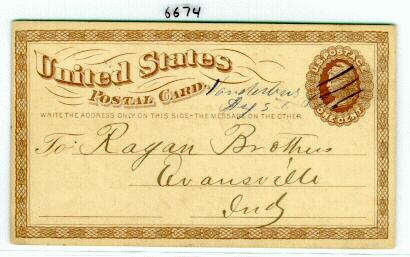 6674
United States
Postal Card.
WRITE THE ADDRESS ONLY ON THIS SIDE-THE MESSAGE ON THE OTHER
U.S. POSTAGE
ONE CENT
To: Ragan Brothers
Evansville
Ind